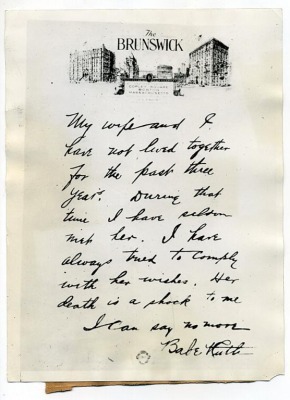 The
BRUNSWICK
COPLEY SQUARE
BOSTON
MASSACHUSETTS
My wife and I
have not lived together
for the past three
years. During that
time I have seldom
met her. I have
always tried to comply
with her wishes. Her
death is a shock to me
I can say no more
Babe Ruth